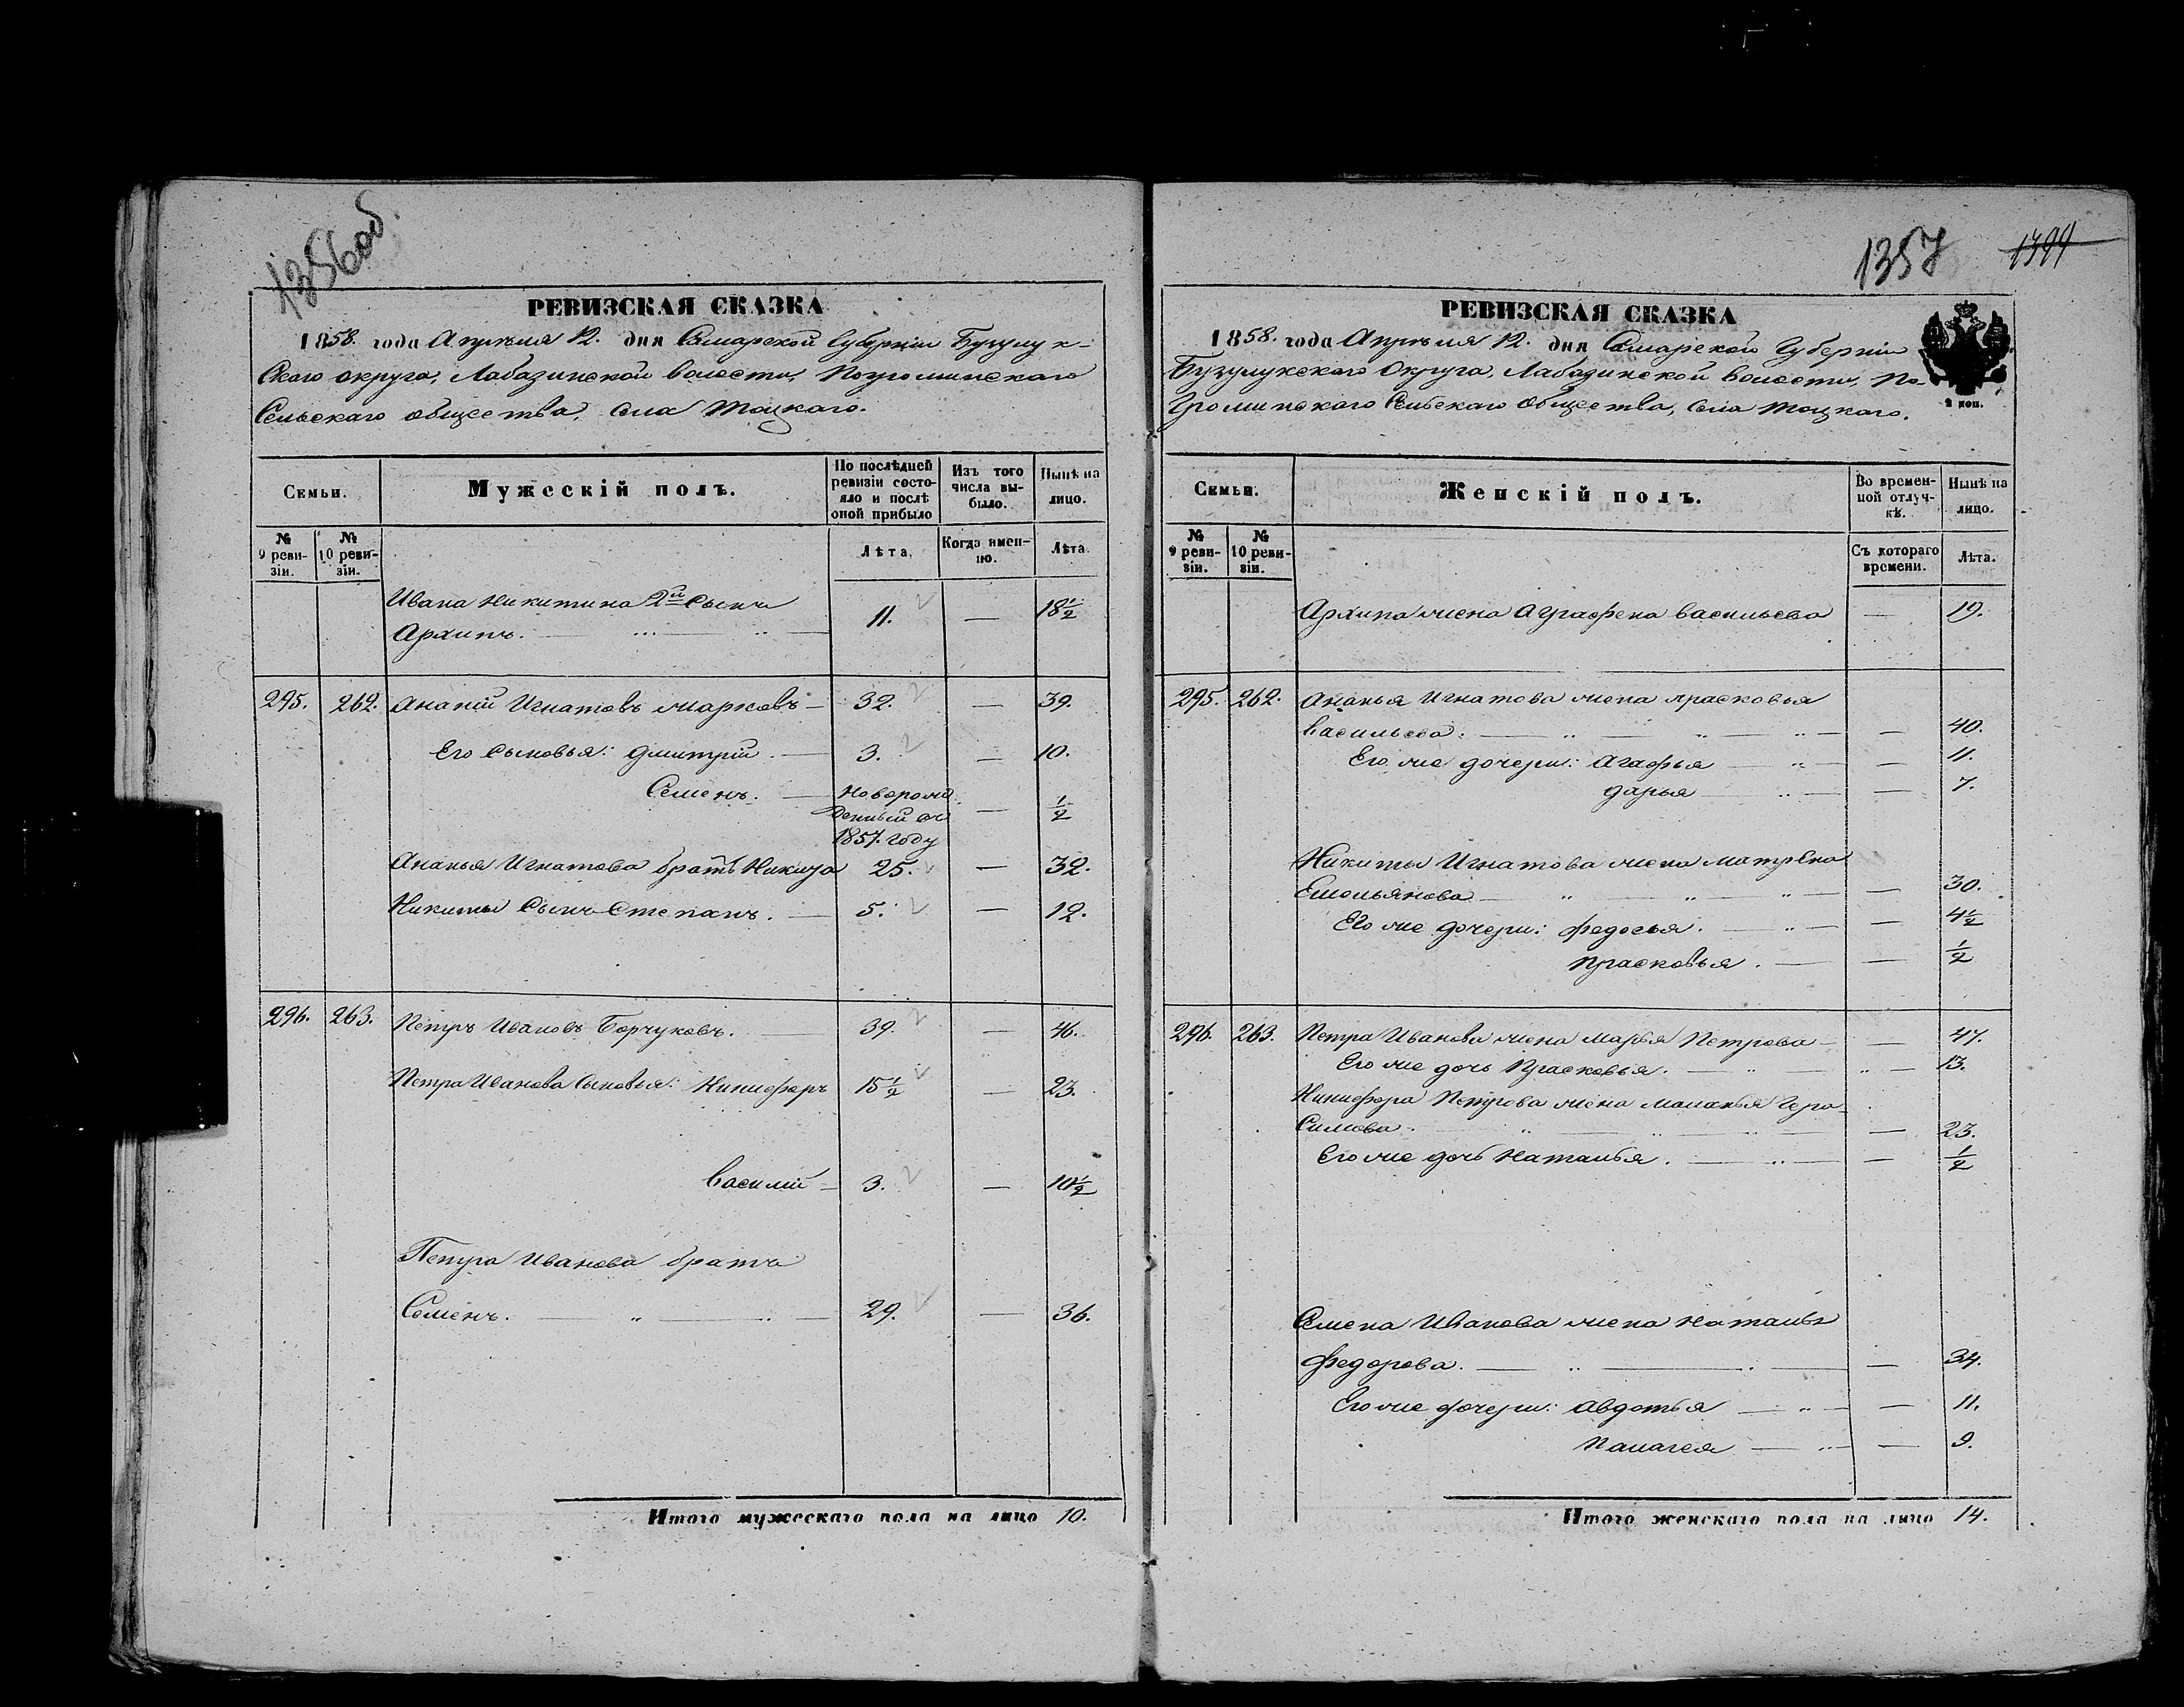 1356об.
РЕВИЗСКАЯ СКАЗКА
1858. года Апрѣля 12. дня Самарской Губерніи Бузулук-
скаго округа, Лабазинской волости, Погроминскаго
Сельскаго общества, села Тоцкаго.
Семьи.
Мужескій полъ.
По послѣдней ревизіи состояло и послѣ оной прибыло
Изъ того числа выбыло.
Нынѣ на лицо.
№ 9 ревизіи.
№ 10 ревизіи.
Лѣта.
Когда именно.
Лѣта.
Ивана Никитина 2й сынъ
Архипъ. 11. — 18½
295. 262. Ананій Игнатовъ Марковъ — 32. — 39.
Его сыновья: Дмитрій. — 3. — 10.
Семенъ. — Новорож
денный въ — ½
1857. году
Ананья Игнатова братъ Никита 25. — 32.
Никиты сынъ Степанъ. — 5. — 12.
296. 263. Петръ Ивановъ Борчуковъ. — 39. — 46.
Петра Иванова сыновья: Никифоръ 15½ — 23.
Василій — 3. — 10½
Петра Иванова братъ
Семенъ. — 29. — 36.
Итого мужескаго пола на лицо 10.
1357
1399
РЕВИЗСКАЯ СКАЗКА
1858. года Апрѣля 12. дня Самарской Губерніи
Бузулукскаго Округа, Лабазинской волости, По-
громинскаго Сельскаго общества, села Тоцкаго.
2 коп.
Семьи.
Женскій полъ.
Во временной отлучкѣ.
Нынѣ на лицо.
№ 9 ревизіи.
№ 10 ревизіи.
Съ котораго времени.
Лѣта.
Архипа жена Аграфена Васильева — 19.
295. 262. Ананья Игнатова жена Прасковья
Васильева. — 40.
Его же дочери: Агафья — 11.
Дарья — 7.
Никиты Игнатова жена Матрена
Емельянова — 30.
Его же дочери: Федосья. — 4½
Прасковья. — ½
296. 263. Петра Иванова жена Марья Петрова — 47.
Его же дочь Прасковья. — 13.
Никифора Петрова жена Маланья Гера-
симова. — 23.
Его же дочь Наталья. — ½
Семена Иванова жена Наталья
Федорова. — 34.
Его же дочери: Авдотья — 11.
Палагея — 9.
Итого женскаго пола на лицо 14.